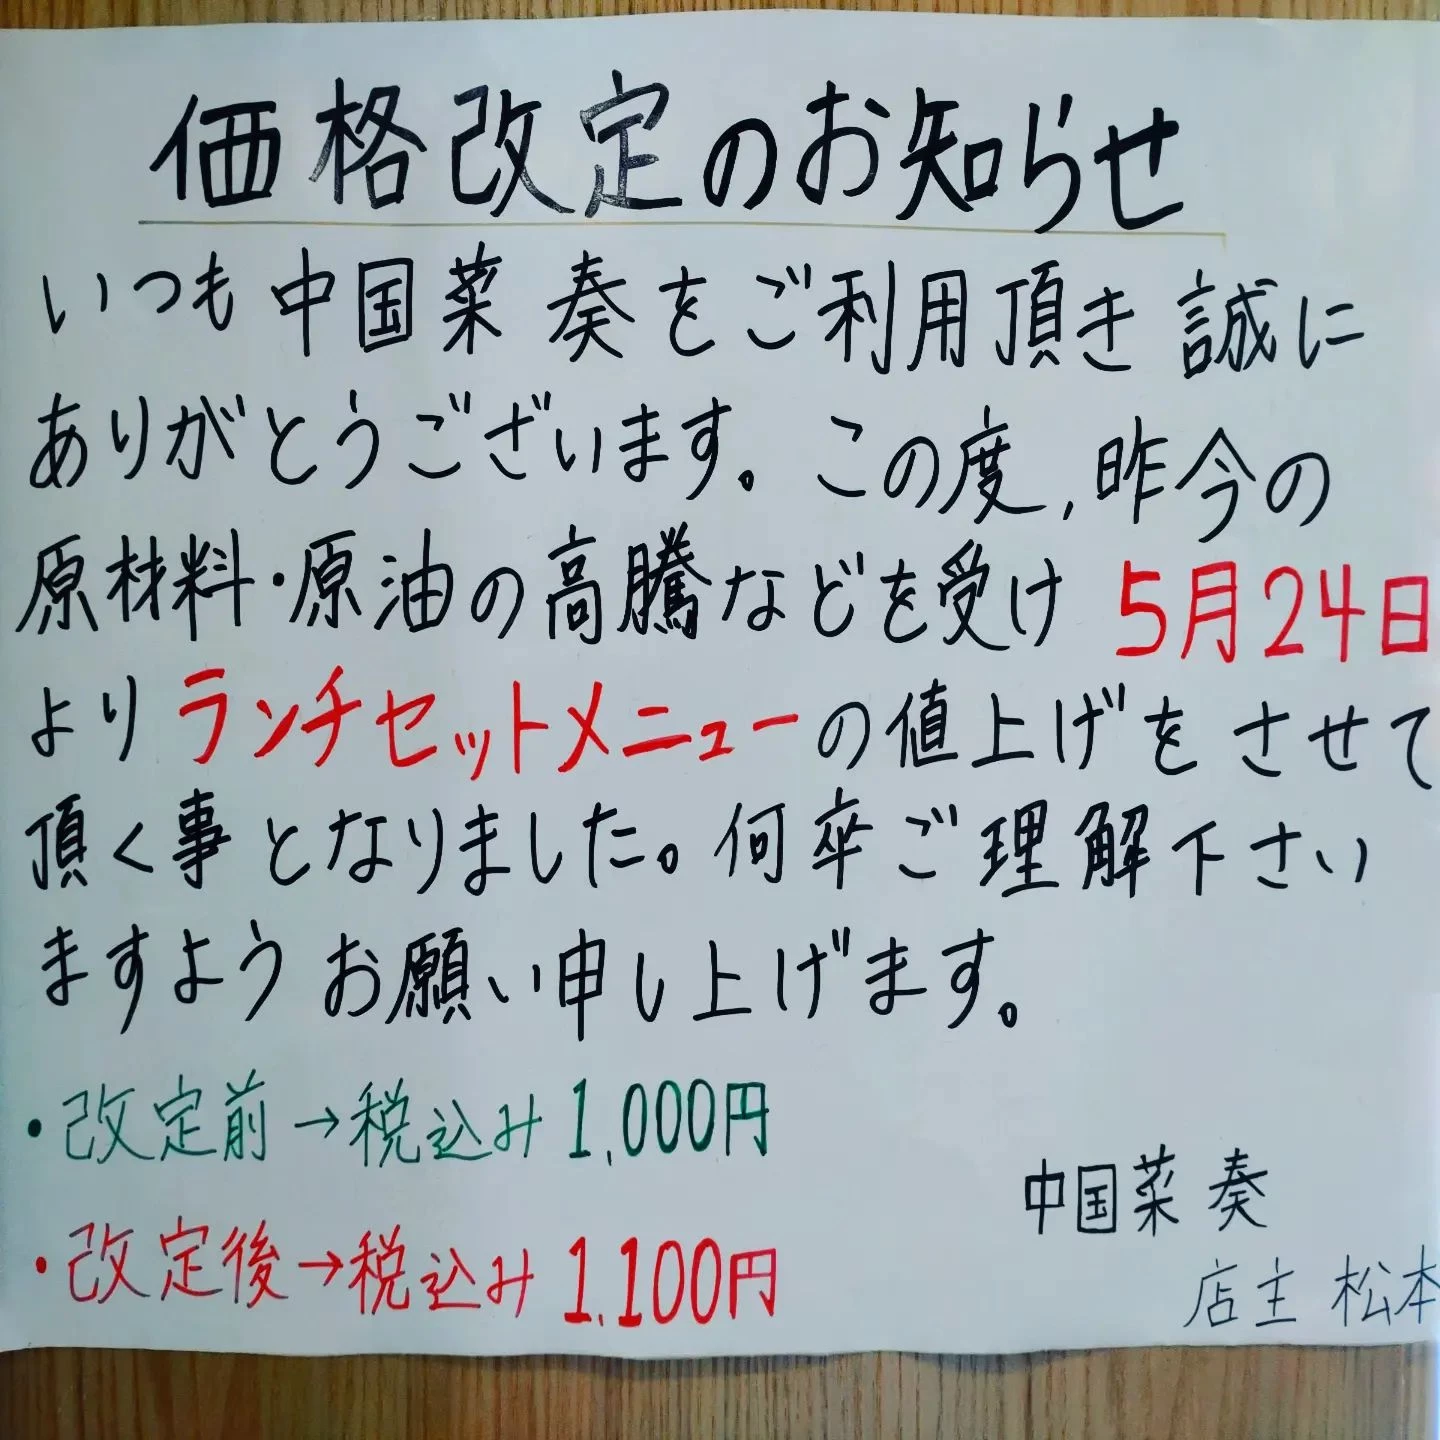 価格改定のお知らせ
いつも中国菜 奏をご利用頂き誠に
ありがとうございます。この度,昨今の
原材料・原油の高騰などを受け 5月24日
よりランチセットメニューの値上げをさせて
頂く事となりました。何卒ご理解下さい
ますようお願い申し上げます。
・改定前→税込み1,000円
・改定後→税込み1,100円
中国菜 奏
店主 松本